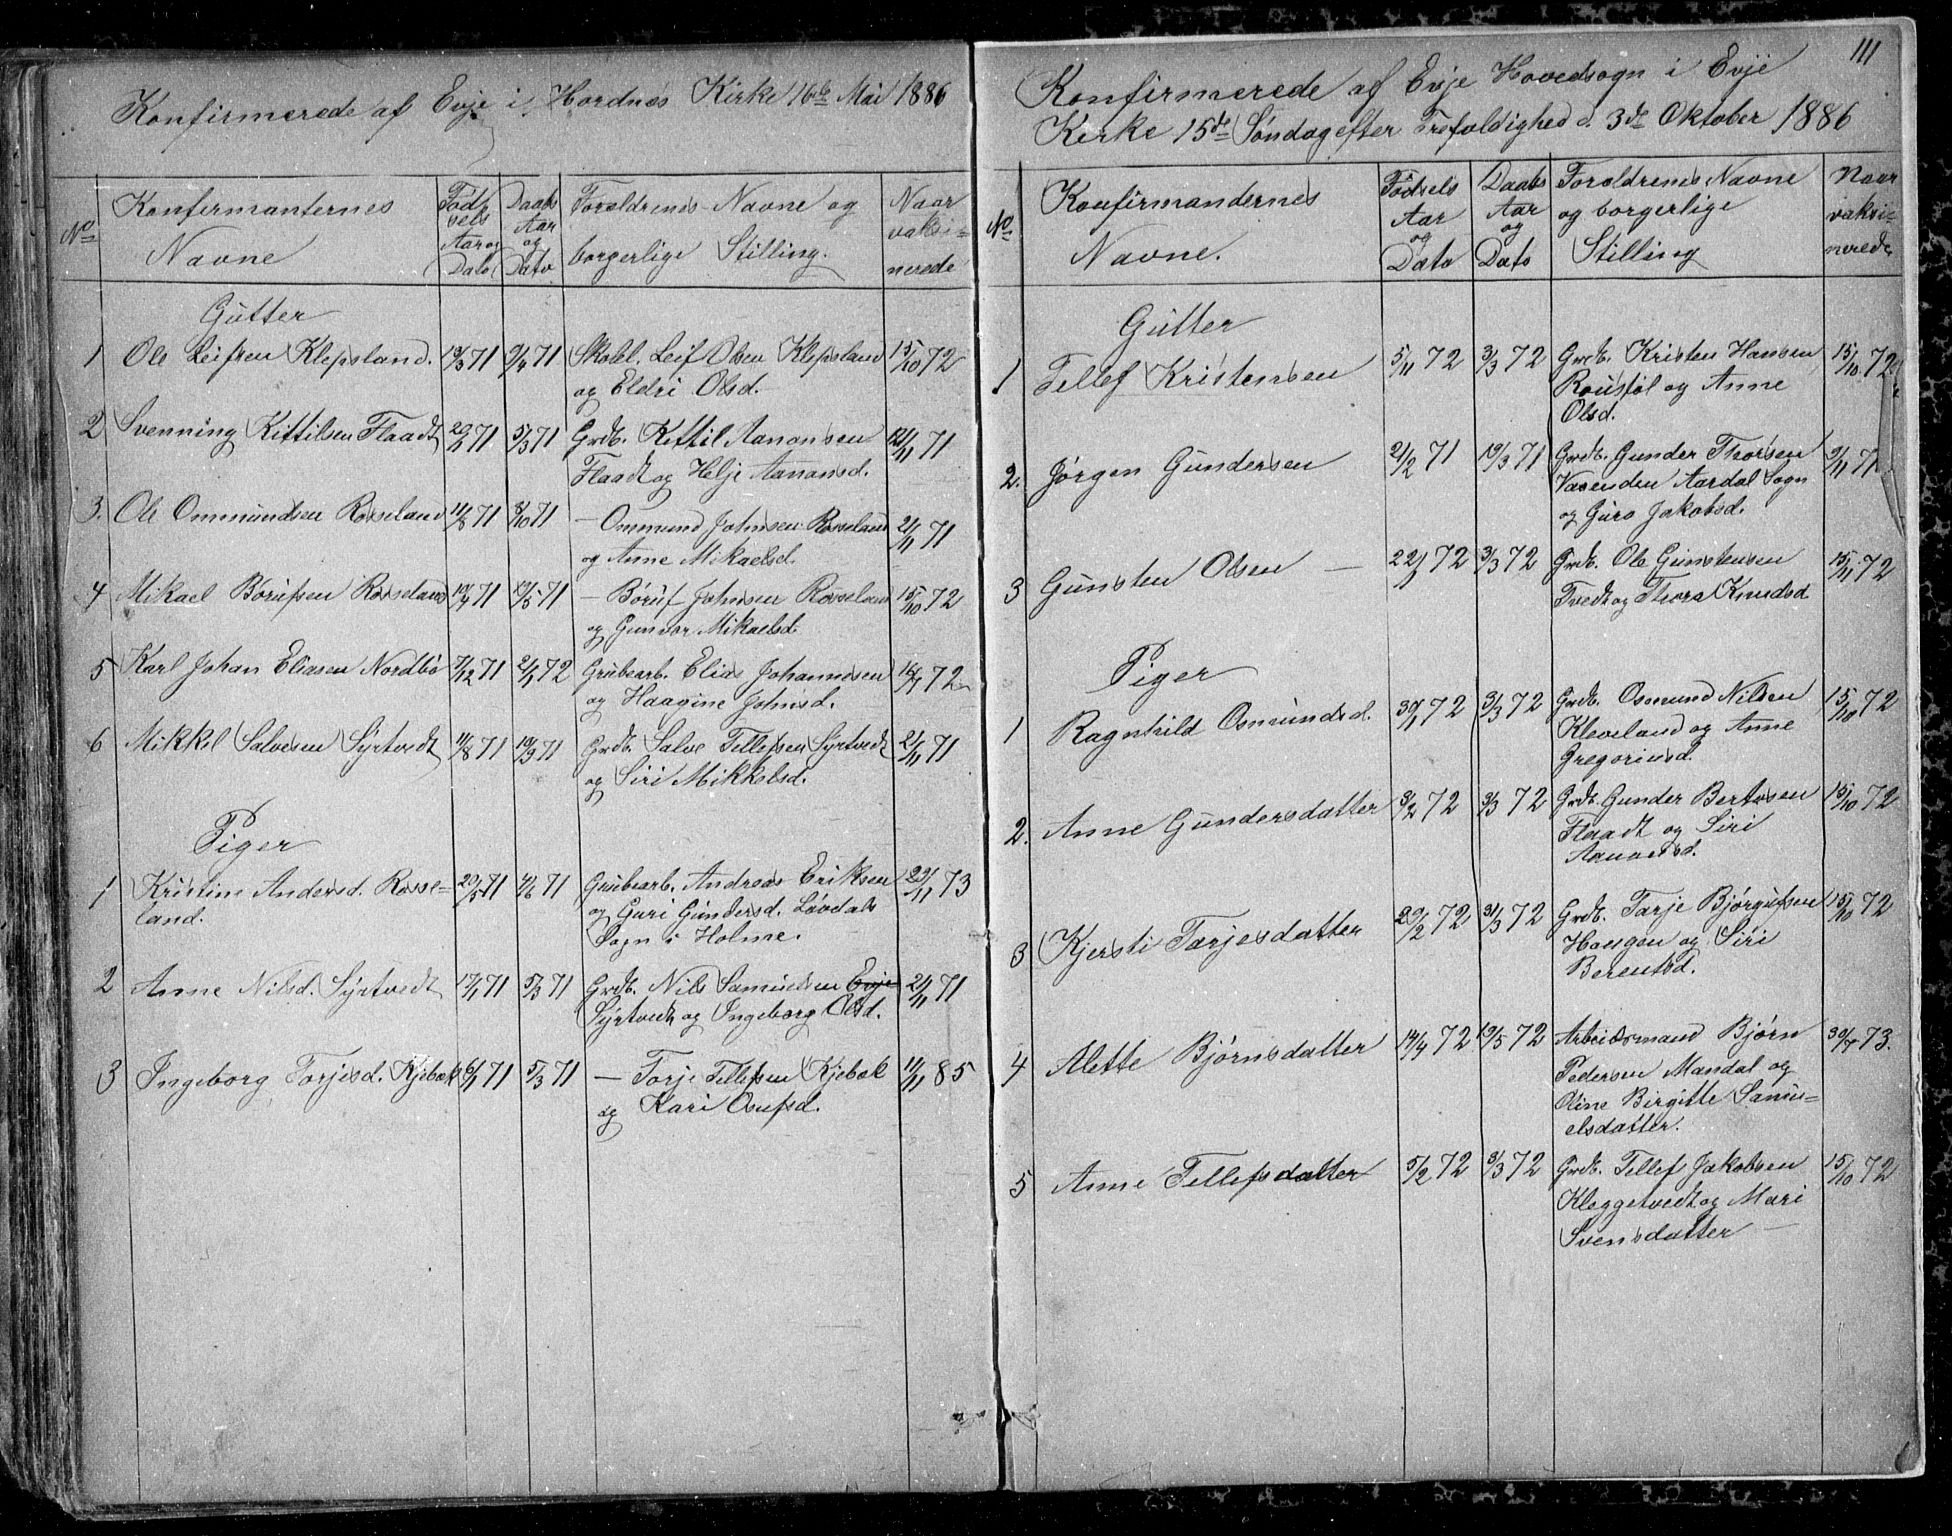 Konfirmerede af Evje i Hordnes Kirke 16de Mai 1886
No
Konfirmanternes Navne
Fødselsaar og Dato
Daabs Aar og Dato
Forældrenes Navne og borgerlige Stilling.
Naar vaksinerede
Gutter
1 Ole Leifsen Klepsland. 19/3 71 9/4 71 Skolel. Leif Olsen Klepsland 15/10 72
og Eldri Olsd.
2 Svenning Kittilsen Flaadt 71 5/3 71 Grdb. Kittil Aanonsen 71
Flaadt og Helje Aanonsd.
3. Ole Ommundsen Rosseland 11/8 71 8/10 71 — Ommund Johnsen Rosseland 2/11 71
og Anne Mikaelsd.
4 Mikael Børufsen Rosseland 71 71 — Børuf Johnsen Rosseland 15/10 72
og Gunvor Mikaelsd.
5 Karl Johan Eliasen Nordbø 7/12 71 2/1 72 Grubearb. Elias Johannesen 72
og Haagine Johnsd.
6 Mikkel Salvesen Syrtvedt 11/8 71 71 Grdb. Salve Tellefsen Syrtvedt 2/11 71
og Siri Mikkelsd.
Piger
1 Kristine Andersd. Rosse- 20/5 71 4/6 71 Grubearb. Andreas Eriksen 22/11 73
land. og Guri Gundersd. Løvdals
Sogn i Holme.
2 Anne Nilsd. Syrtvedt 17/1 71 5/3 71 Grdb. Nils Samuelsen Evje 2/11 71
Syrtvedt og Ingeborg Olsd.
3 Ingeborg Torjesd. Kjebæk 6/1 71 5/3 71 — Torje Tellefsen Kjebæk 11/11 85
og Kari Osufsd.
111
Konfirmerede af Evje Hovedsogn i Evje
Kirke 15de Søndag efter Trefoldighed d. 3de Oktober 1886
No
Konfirmandernes Navne.
Fødsels Aar og Dato
Daabs Aar og Dato
Forældrenes Navne og borgerlige Stilling
Naar vaksinerede
Gutter
1 Tellef Kristensen 5/11 72 3/3 72 Grdb. Kristen Hansen 15/10 72
og Anne
Olsd.
2. Jørgen Gundersen 2/2 71 19/3 71 Grdb. Gunder Thorsen 2/11 71
Aardal Sogn
og Guro Jakobsd.
3 Gunsten Olsen — 22/1 72 3/3 72 Grdb. Ole Gunstensen 15/11 72
Tvedt og Thora Knudsd
Piger
1 Ragnhild Osmundsd. 30/1 72 3/3 72 Grdb. Osmund Nilsen 15/10 72
Kleveland og Anne
Gregoriusd.
2. Anne Gundersdatter 3/2 72 3/3 72 Grdb. Gunder Bertesen 15/10 72
Flaadt og Siri
3 Kjersti Tarjesdatter 29/2 72 31/3 72 Grdb. Tarje Bjørgufsen 15/10 72
Haugen og Siri
Berentsd.
4 Alette Bjørnsdatter 14/4 72 19/5 72 Arbeidsmand Bjørn 73.
Pedersen Mandal og
Oline Birgitte Samu-
elsdatter.
5 Anne Tellefsdatter 5/2 72 3/3 72 Grdb. Tellef Jakobsen 15/10 72
Kleggetvedt og Mari
Svensdatter —